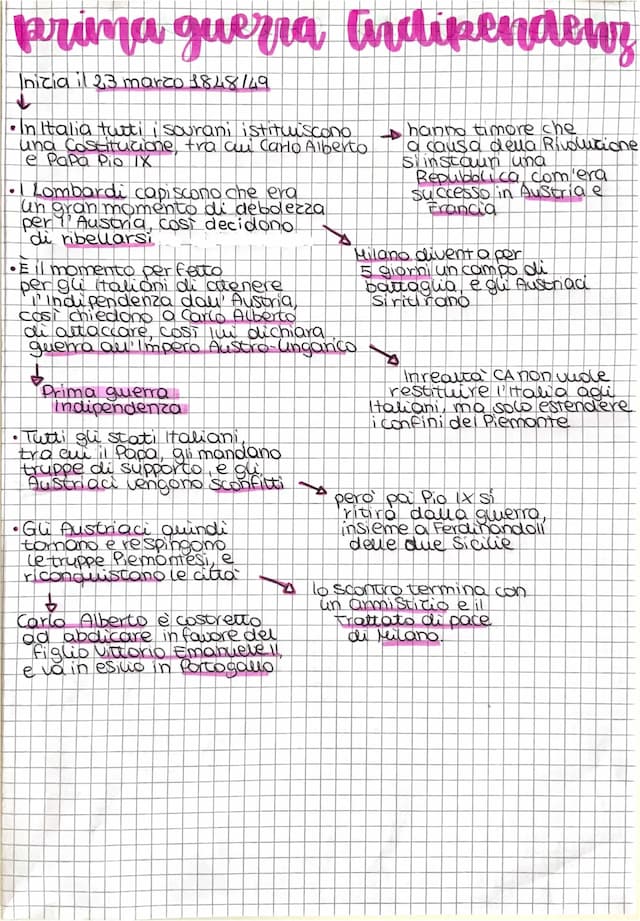 prima guerra indipendenz
Inizia il 23 marzo 1848/49
• In Italia tutti i sovrani istituiscono
una Costituzione, tra cui Carlo Alberto
e Papa Pio IX
hanno timore che
a causa della Rivoluzione
si instauri una
Repubblica, com'era
successo in Austria e
Francia
• I Lombardi capiscono che era
un gran momento di debolezza
per l'Austria, così decidono
di ribellarsi
Milano diventa per
5 giorni un campo di
battaglia, e gli Austriaci
si ritirano
• È il momento perfetto
per gli Italiani di ottenere
l'indipendenza dall'Austria,
così chiedono a Carlo Alberto
di attaccare, così lui dichiara
guerra all'Impero Austro-Ungarico
In realtà CA non vuole
restituire l'Italia agli
Italiani, ma solo estendere
i confini del Piemonte
Prima guerra
Indipendenza
• Tutti gli stati Italiani,
tra cui il Papa, gli mandano
truppe di supporto, e gli
Austriaci vengono sconfitti
però pa Pio IX si
ritira dalla guerra,
insieme a Ferdinando II
delle due Sicilie
• Gli Austriaci quindi
tornano e respingono
le truppe Piemontesi, e
riconquistano le città
lo scontro termina con
un armistizio e il
trattato di pace
di Milano.
Carlo Alberto è costretto
ad abdicare in favore del
figlio Vittorio Emanuele II,
e va in esilio in Portogallo